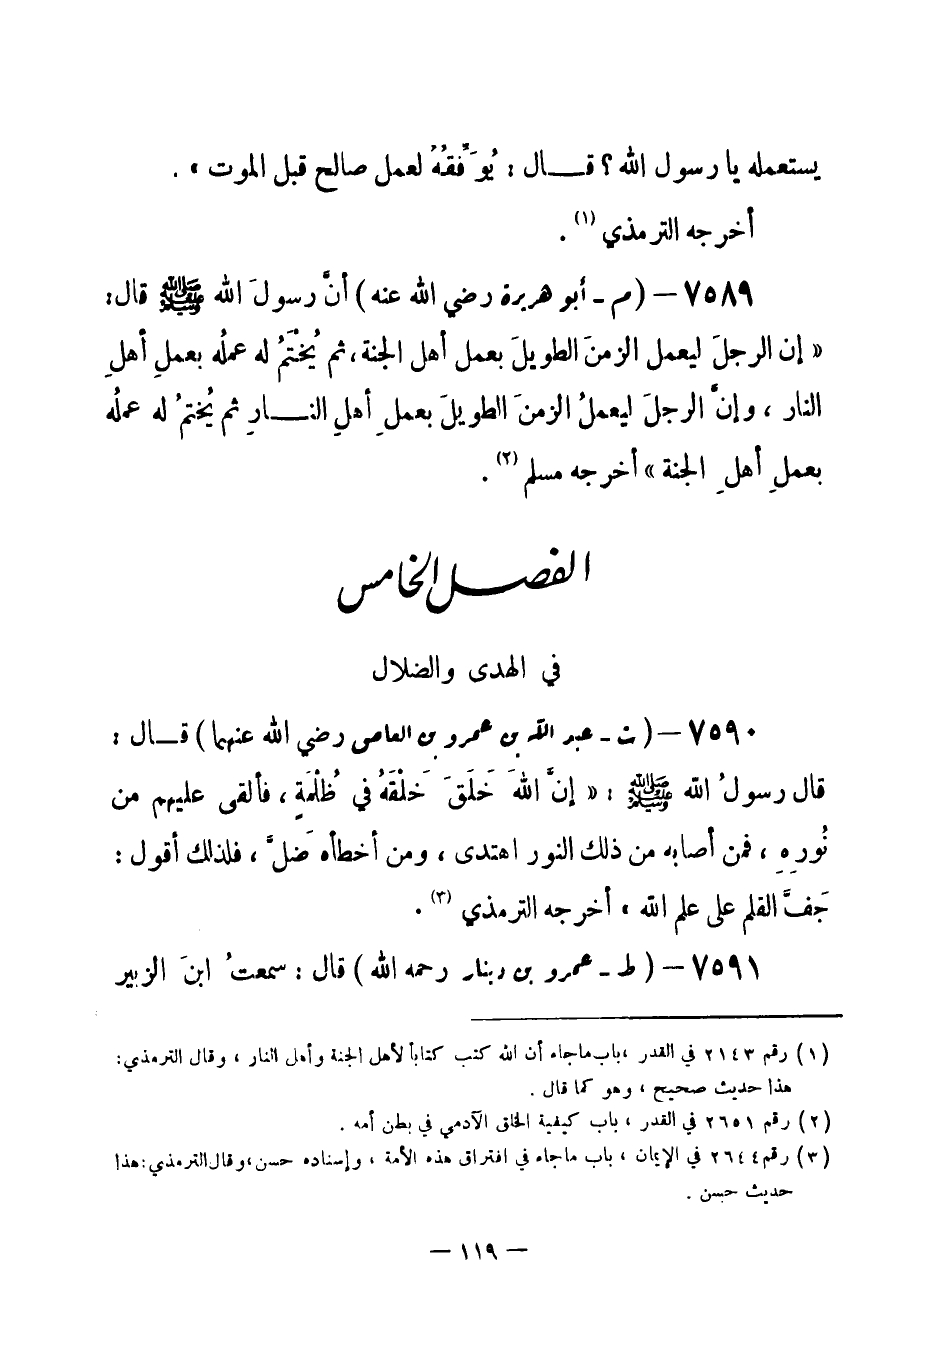 يستعمله يا رسول الله ؟ قـــال : يُوَفِّقُهُ لعمل صالح قبل الموت » .
أخرجه الترمذي (١) .
٧٥٨٩ – (م - أبو هريرة رضي الله عنه) أنَّ رسولَ الله ﷺ قال:
« إن الرجلَ ليعمل الزمنَ الطويلَ بعمل أهل الجنة، ثم يُخْتَمُ له عملُه بعملِ أهلِ
النار ، وإنَّ الرجلَ ليعملُ الزمنَ الطويلَ بعملِ أهلِ النـــارِ ثم يُختمُ له عملُه
بعملِ أهلِ الجنة » أخرجه مسلم (٢) .
الفصل الخامس
في الهدى والضلال
٧٥٩٠ – (ت - عبد الله بن عمرو بن العاص رضي الله عنهما) قـال :
قال رسولُ الله ﷺ : « إنَّ اللهَ خَلَقَ خَلْقَهُ في ظُلْمَةٍ ، فألقى عليهم من
نُورِهِ ، فمن أصابه من ذلك النور اهتدى ، ومن أخطأه ضَلَّ ، فلذلك أقول :
جَفَّ القلم على علم الله » أخرجه الترمذي (٣) .
٧٥٩١ – ( ط - عمرو بن دينار رحمه الله ) قال : سمعتُ ابنَ الزبير
(١) رقم ٢١٤٣ في القدر ، باب ما جاء أن الله كتب كتاباً لأهل الجنة وأهل النار ، وقال الترمذي:
هذا حديث صحيح ، وهو كما قال .
(٢) رقم ٢٦٥١ في القدر ، باب كيفية الخلق الآدمي في بطن أمه .
(٣) رقم ٢٦٤٤ في الإيمان ، باب ما جاء في افتراق هذه الأمة ، وإسناده حسن، وقال الترمذي: هذا
حديث حسن .
— ١١٩ —